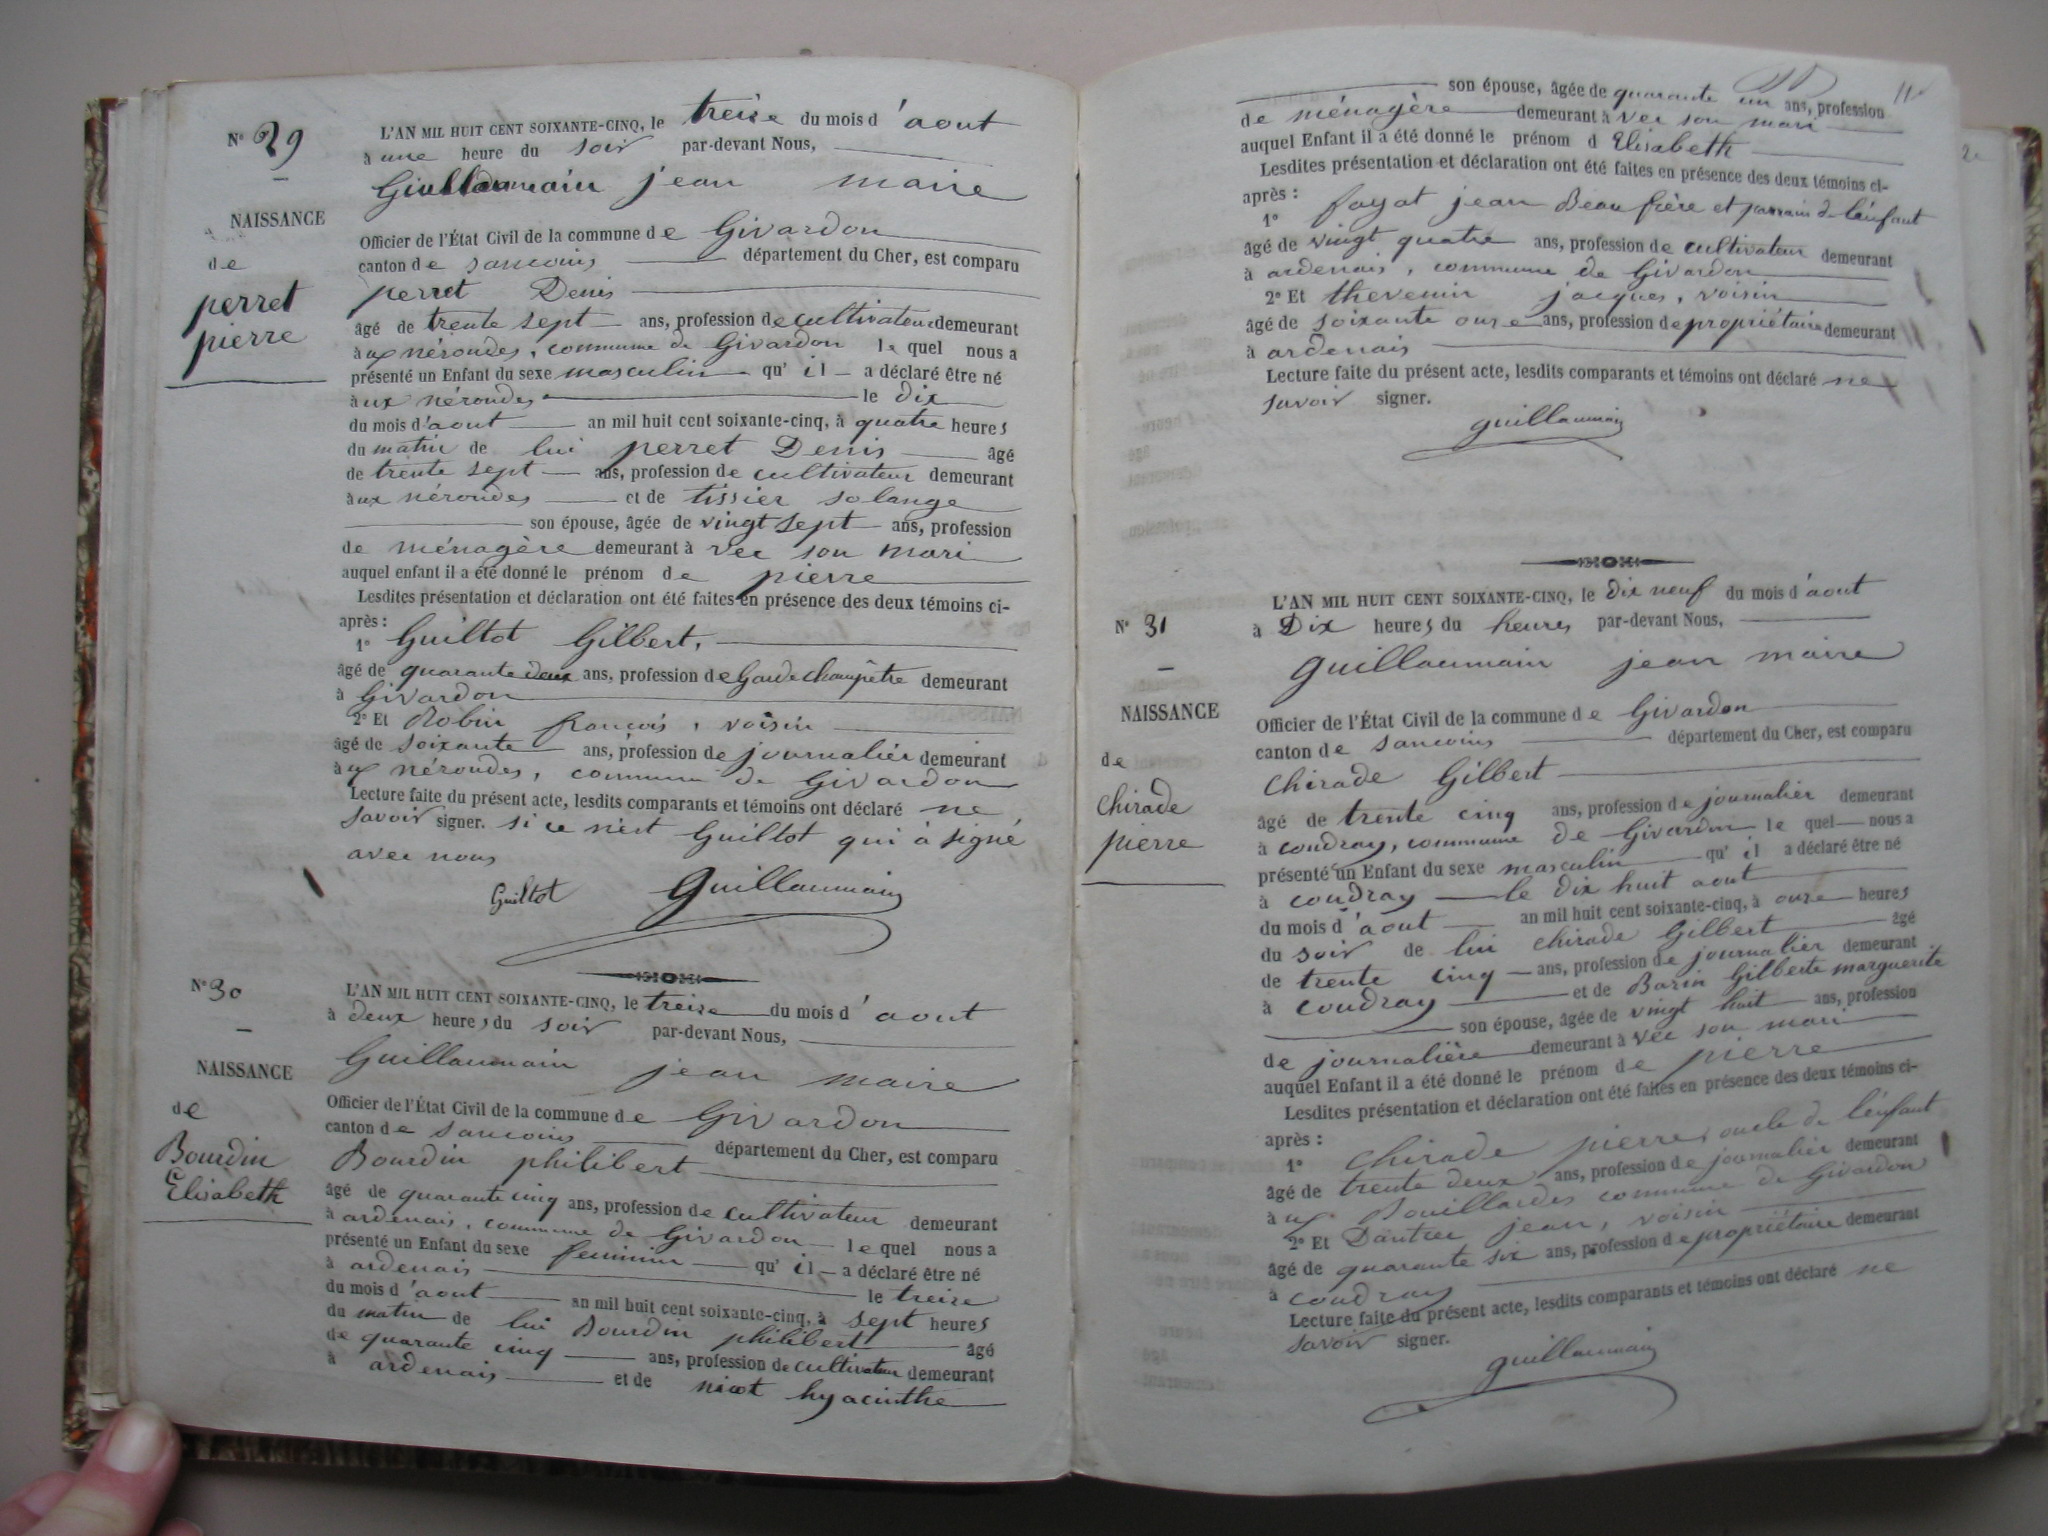 N° 29
NAISSANCE
de
perret
pierre
L'AN MIL HUIT CENT SOIXANTE-CINQ, le treise du mois d'aout
à une heure du soir par-devant Nous,
Guillaumain jean maire
Officier de l'État Civil de la commune de Givardon
canton de sancoins département du Cher, est comparu
perret Denis
âgé de trente sept ans, profession de cultivateur demeurant
à ux nérondes, commune de Givardon le quel nous a
présenté un Enfant du sexe masculin qu'il a déclaré être né
à ux nérondes le dix
du mois d'aout an mil huit cent soixante-cinq, à quatre heures
du matin de lui perret Denis âgé
de trente sept ans, profession de cultivateur demeurant
à ux nérondes et de tissier solange
son épouse, âgée de vingt sept ans, profession
de ménagère demeurant à vec son mari
auquel enfant il a été donné le prénom de pierre
Lesdites présentation et déclaration ont été faites en présence des deux témoins ci-
après :
1° Guiltot Gilbert,
âgé de quarante deux ans, profession de Garde champêtre demeurant
à Givardon
2° Et Robin francois, voisin
âgé de soixante ans, profession de journalier demeurant
à ux nérondes, commune de Givardon
Lecture faite du présent acte, lesdits comparants et témoins ont déclaré ne
savoir signer. si ce n'est Guiltot qui à signé
avec nous
Guiltot Guillaumain
N° 30
NAISSANCE
de
Bourdin
Elisabeth
L'AN MIL HUIT CENT SOIXANTE-CINQ, le treise du mois d'aout
à deux heures du soir par-devant Nous,
Guillaumain jean maire
Officier de l'État Civil de la commune de Givardon
canton de sancoins département du Cher, est comparu
Bourdin philibert
âgé de quarante cinq ans, profession de cultivateur demeurant
à ardenais, commune de Givardon le quel nous a
présenté un Enfant du sexe feminin qu'il a déclaré être né
à ardenais le treize
du mois d'aout an mil huit cent soixante-cinq, à sept heures
du matin de lui Bourdin philibert âgé
de quarante cinq ans, profession de cultivateur demeurant
à ardenais et de nicot hyacinthe
son épouse, âgée de quarante un ans, profession
de ménagère demeurant à vec son mari
auquel Enfant il a été donné le prénom d Elisabeth
Lesdites présentation et déclaration ont été faites en présence des deux témoins ci-
après :
1° fayat jean Beau frère et parrain de l'enfant
âgé de vingt quatre ans, profession de cultivateur demeurant
à ardenais, commune de Givardon
2° Et thevenin jacques, voisin
âgé de soixante onze ans, profession de propriétaire demeurant
à ardenais
Lecture faite du présent acte, lesdits comparants et témoins ont déclaré ne
savoir signer.
guillaumain
N° 31
NAISSANCE
de
chirade
pierre
L'AN MIL HUIT CENT SOIXANTE-CINQ, le dix neuf du mois d'aout
à Dix heures du heures par-devant Nous,
guillaumain jean maire
Officier de l'État Civil de la commune de Givardon
canton de sancoins département du Cher, est comparu
chirade Gilbert
âgé de trente cinq ans, profession de journalier demeurant
à coudray, commune de Givardon le quel nous a
présenté un Enfant du sexe masculin qu'il a déclaré être né
à coudray le dix huit aout
du mois d'aout an mil huit cent soixante-cinq, à onze heures
du soir de lui chirade Gilbert âgé
de trente cinq ans, profession de journalier demeurant
à coudray et de Barin Gilberte marguerite
son épouse, âgée de vingt huit ans, profession
de journalière demeurant à vec son mari
auquel Enfant il a été donné le prénom de pierre
Lesdites présentation et déclaration ont été faites en présence des deux témoins ci-
après :
1° chirade pierre, oncle de l'enfant
âgé de trente deux ans, profession de journalier demeurant
à ux Bouillardes commune de Givardon
2° Et jean, voisin
âgé de quarante six ans, profession de propriétaire demeurant
à coudray
Lecture faite du présent acte, lesdits comparants et témoins ont déclaré ne
savoir signer.
guillaumain